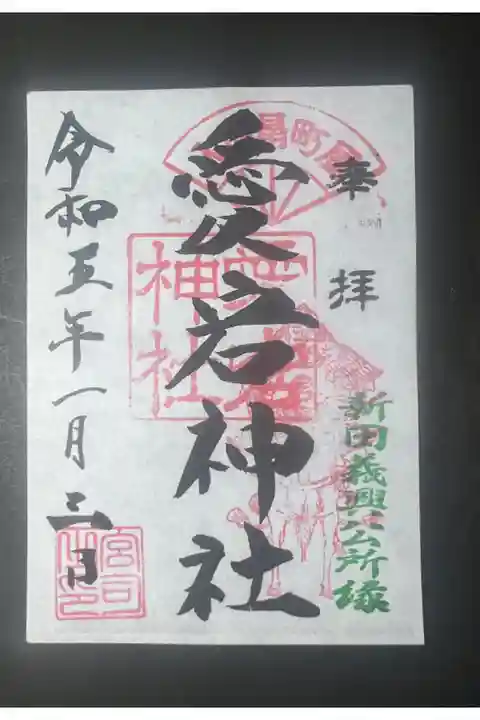 奉拝
新田義興公所縁
愛宕神社
神社
令和五年一月三日
宮司之印